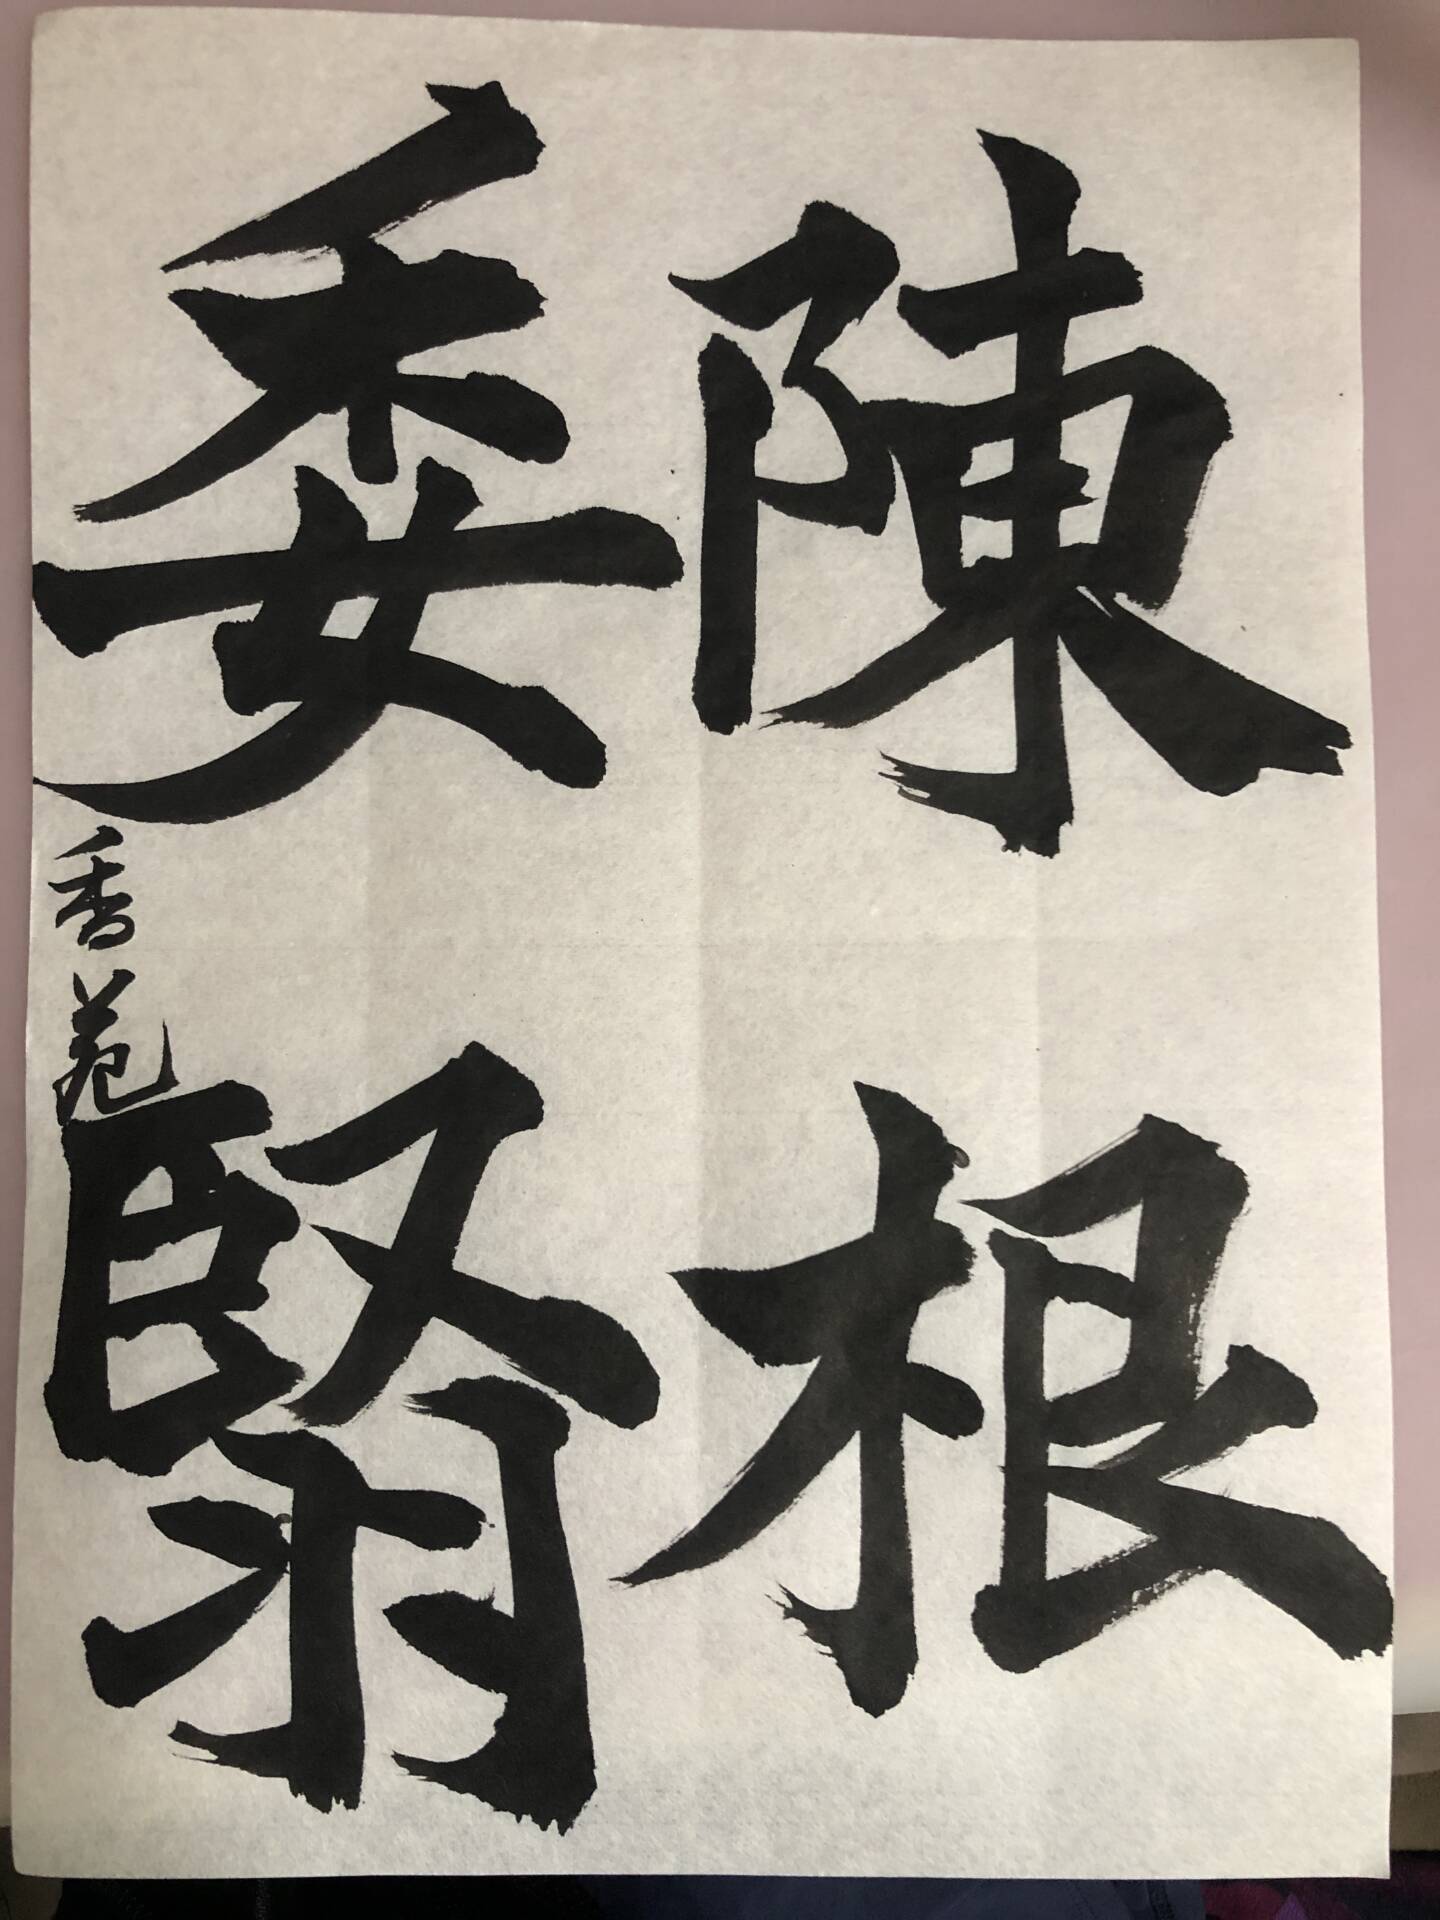 陳根
委翳
香苑